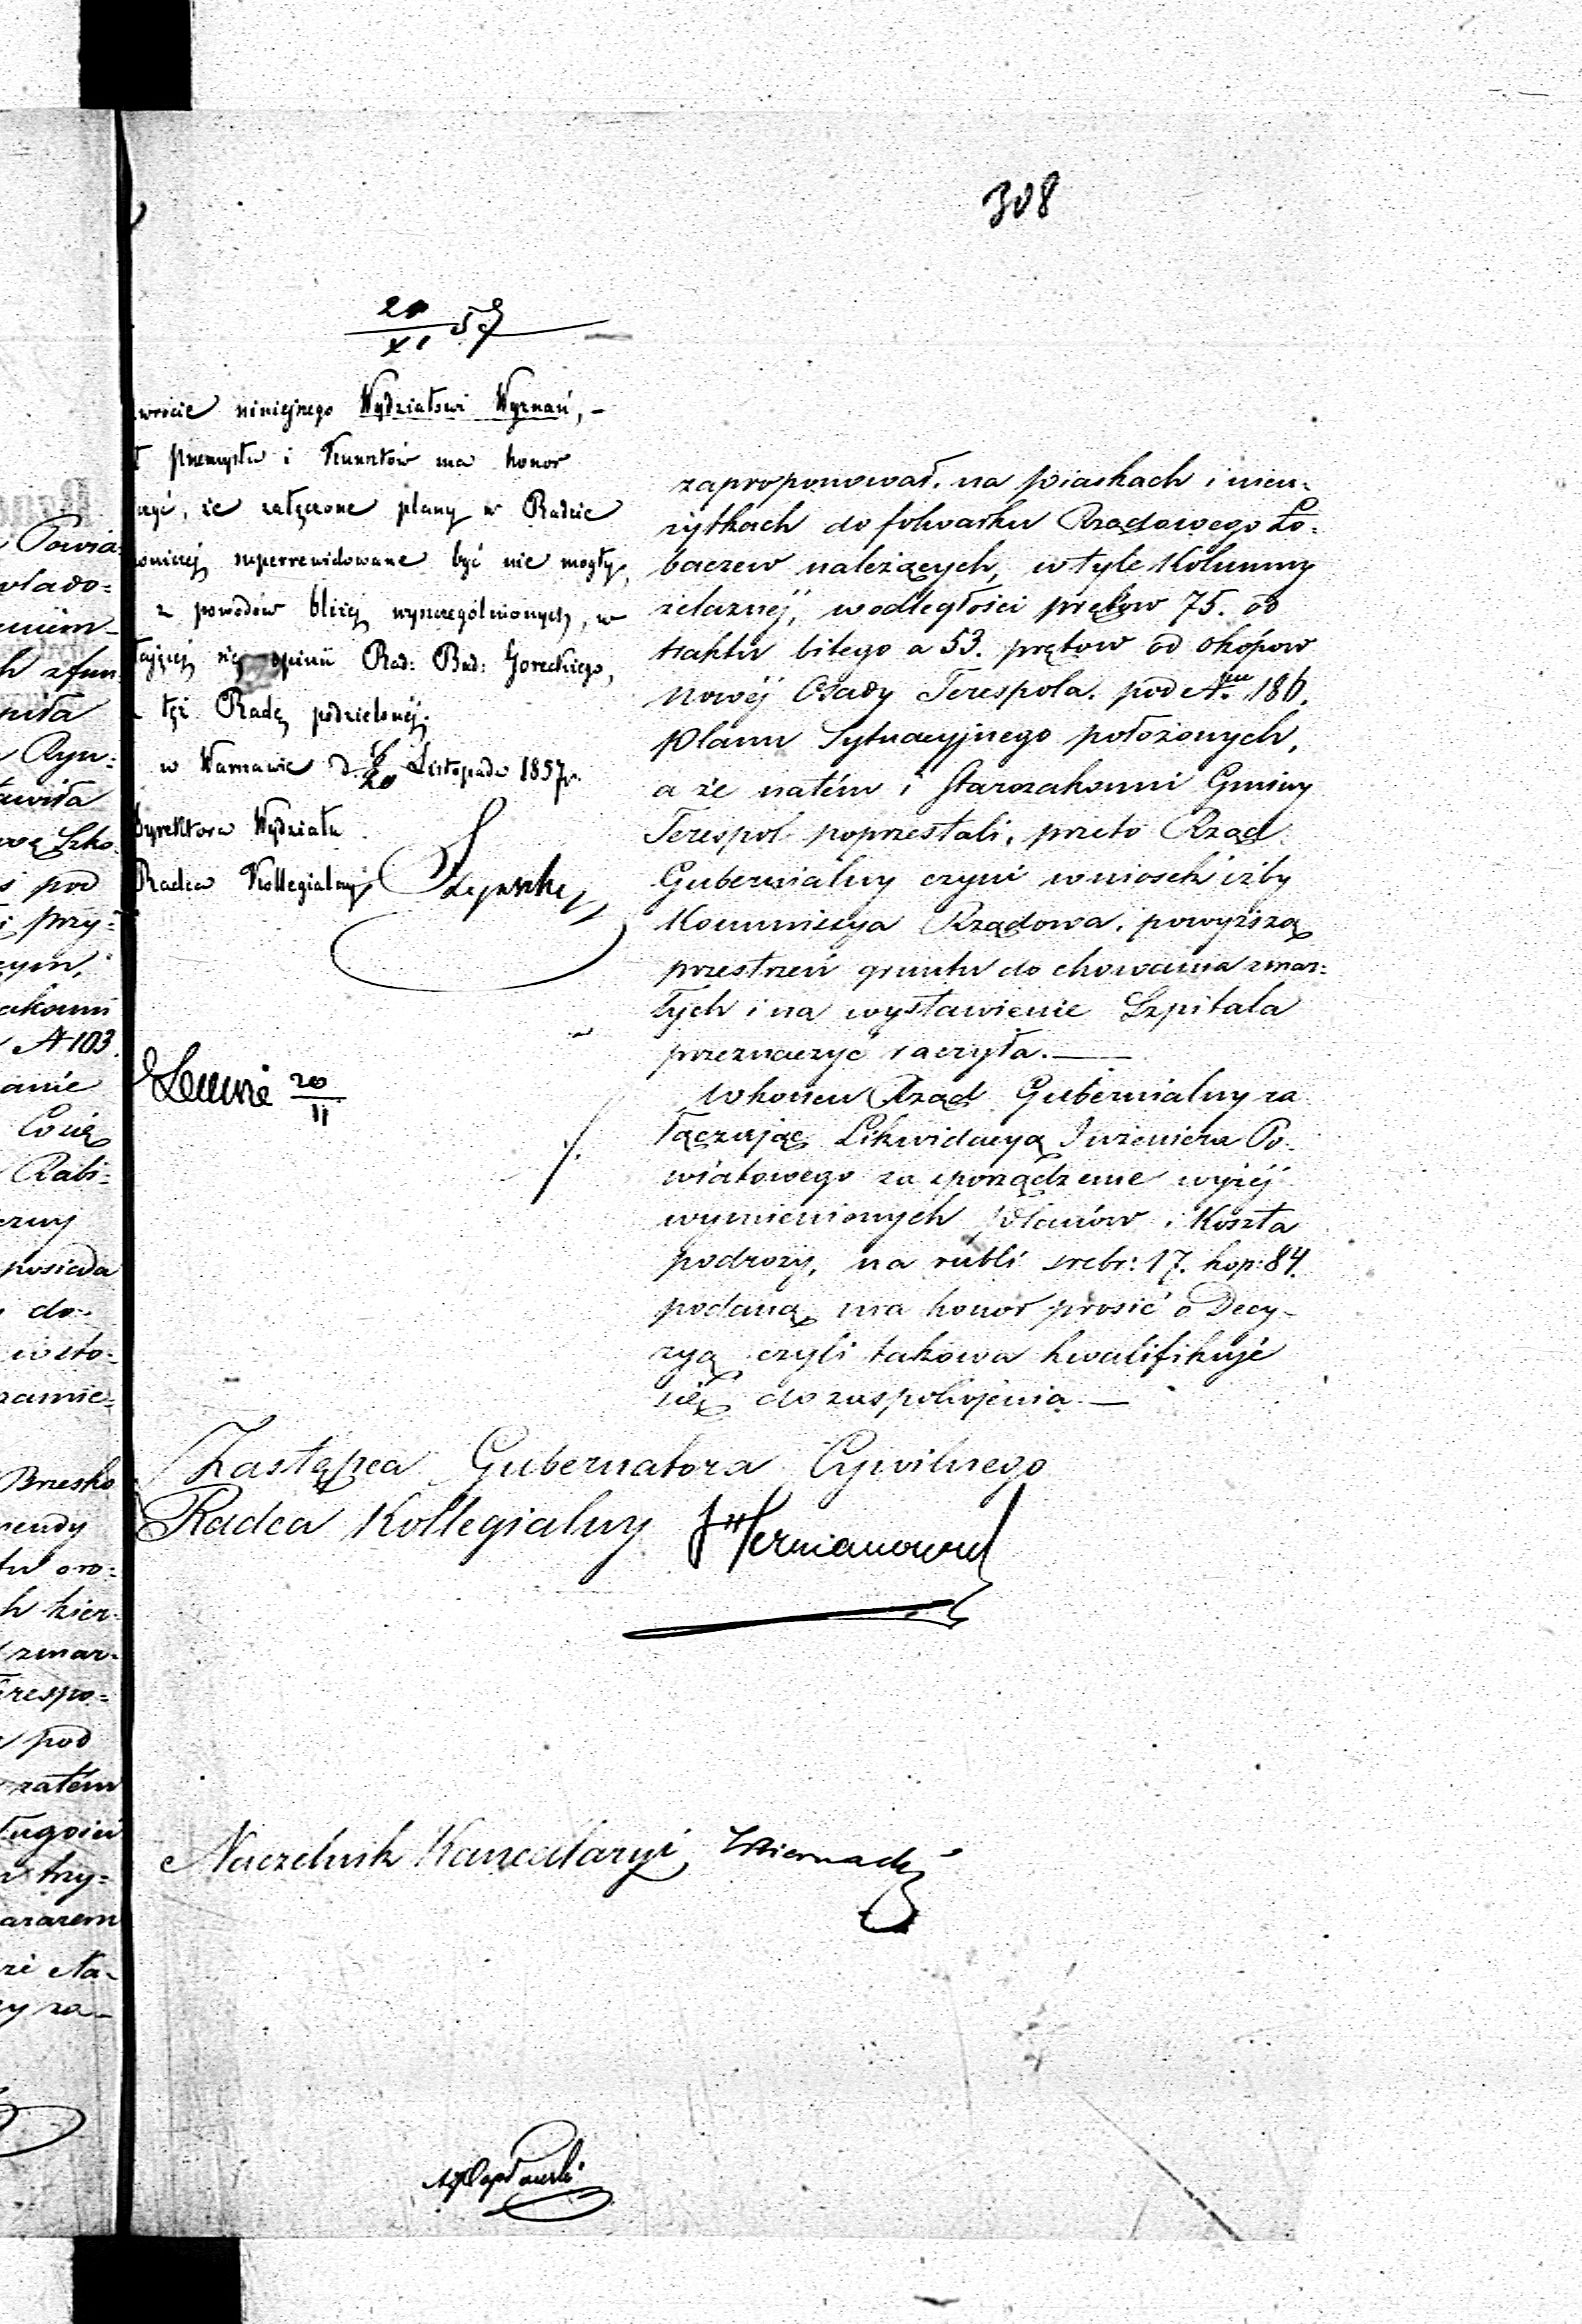 308
20/XI 57
wrócie niniejszego Wydziałowi Wyznań, –
ł Przemysłu i Kunsztów ma honor
czyć, że załączone plany w Radzie
owniczej superrewidowane być nie mogły,
z powodów bliżej wyszczególnionych, w
łającej się opinii Rad: Bud: Goreckiego,
tęż Radę podzielonej.
w Warszawie d. 8/20 Listopada 1857 r.
Dyrektora Wydziału
Radca Kollegialny
20/11
zaproponował, na piaskach i nieu-
żytkach do folwarku Rządowego Ło-
baczew należących, w tyle Kolumny
żelaznéj, w odległości prętow 75. od
traktu bitego a 53. prętow od okópow
Nowéj Osady Terespola, pod Nrm 186.
Planu Sytuacyjnego położonych,
a że natém i Starozakonni Gminy
Terespol poprzestali, przeto Rząd
Gubernialny czyni wniosek iżby
Kommissya Rządowa, powyższą
przestrzeń gruntu do chowania zmar=
łych i na wystawienie Szpitala
przeznaczyć raczyła. —
W koncu Rząd Gubernialny za
łączając Likwidacyą Inżeniera Po-
wiatowego za sporządzenie wyżéj
wymienionych Planów i Koszta
podrozy, na rubli srebr: 17. kop: 84.
podaną ma honor prosić o Decy-
zyą czyli takowa kwalifikuje
się do zaspokojenia —
Zastępca Gubernatora Cywilnego
Radca Kollegialny
Naczelnik Kancellaryi
Powia
włado-
h z fun
piła
Ryn-
tawiła
pod
i przy-
akonni
N 103.
anie
Rabi-
posiada
do-
zamie-
Brzesko
h kier-
zmar-
Terespo-
pod
zatém
ługości